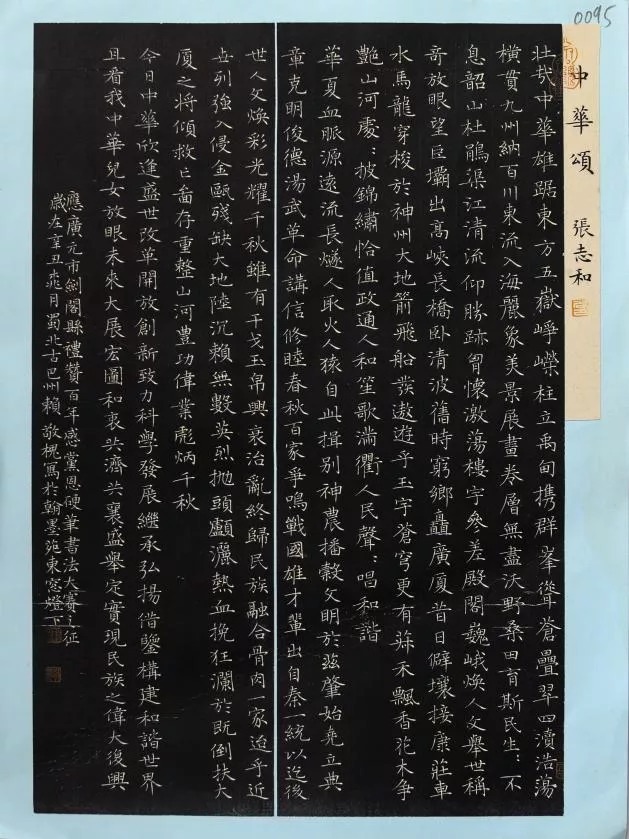 0095
中華頌 張志和
壯哉中華雄踞東方五嶽崢嶸柱立禹甸携群峯聳蒼疊翠四瀆浩蕩
橫貫九州納百川東流入海麗象美景展畫卷層無盡沃野桑田育斯民生々不
息韶山杜鵑渠江清流仰勝跡胷懷激蕩樓宇參差殿閣巍峨煥人文舉世稱
奇放眼望巨壩出高峽長橋卧清波舊時窮鄉矗廣厦昔日僻壤接康莊車
水馬龍穿梭於神州大地箭飛船發遨遊乎玉宇蒼穹更有菽禾飄香花木争
艷山河處々披錦繡恰值政通人和笙歌满衢人民聲々唱和諧
華夏血脈源遠流長燧人取火人猿自此揖別神農播穀文明於兹肇始堯立典
章克明俊德湯武革命講信修睦春秋百家爭鳴戰國雄才輩出自秦一統以迄後
世人文煥彩光耀千秋雖有干戈玉帛興衰治亂終歸民族融合骨肉一家迨乎近
世列強入侵金甌殘缺大地陸沉賴無數英烈抛頭顱灑熱血挽狂瀾於既倒扶大
厦之將傾救亡畣存重整山河豐功偉業彪炳千秋
今日中華欣逢盛世改革開放創新致力科學發展繼承弘揚借鑒構建和諧世界
且看我中華兒女放眼未來大展宏圖和衷共濟共襄盛舉定實現民族之偉大復興
應廣元市劍閣縣禮贊百年感黨恩硬筆書法大賽之征
歲在辛丑桃月蜀北古巴州賴敬槐寫於翰墨苑東窓燈下